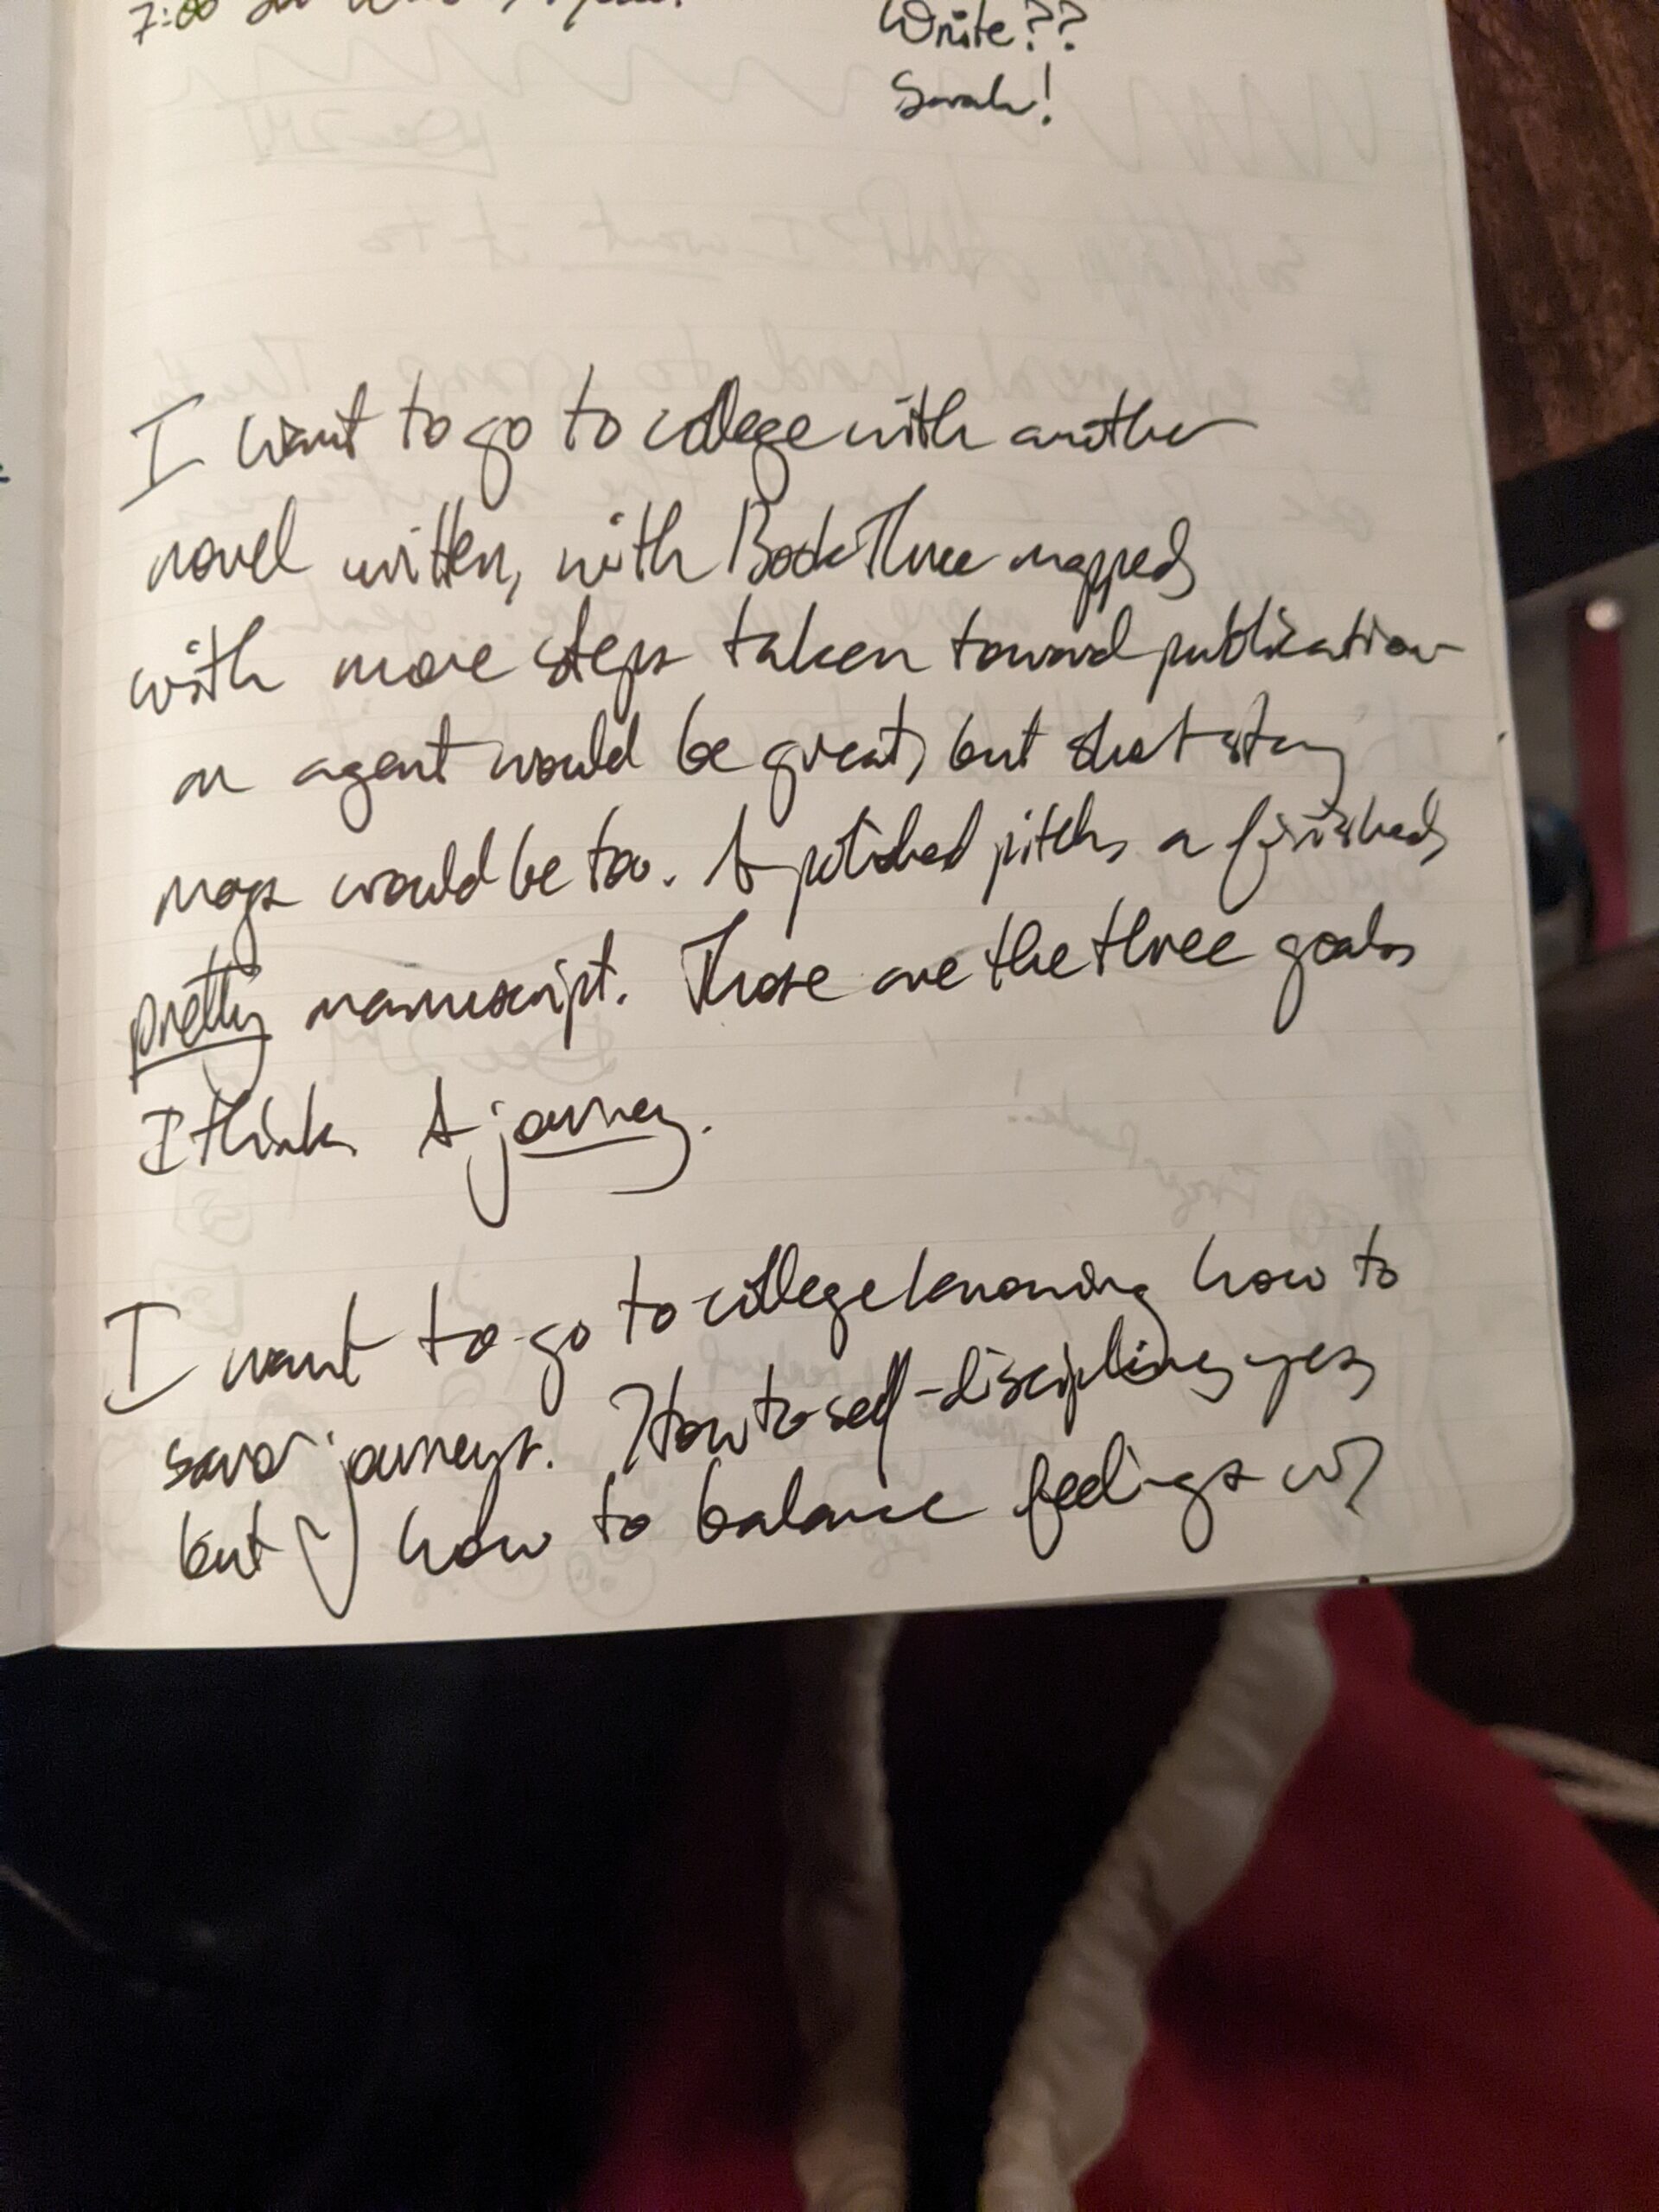 7:00
Write??
Sarah!
I want to go to college with another
novel written, with Book Three mapped,
with more steps taken toward publication
an agent would be great, but short story
mags would be too. A polished pitch, a finished,
pretty manuscript. Those are the three goals
I think. A journey.
I want to go to college knowing how to
savor journeys. How to self-discipline, yes,
but how to balance feelings w/